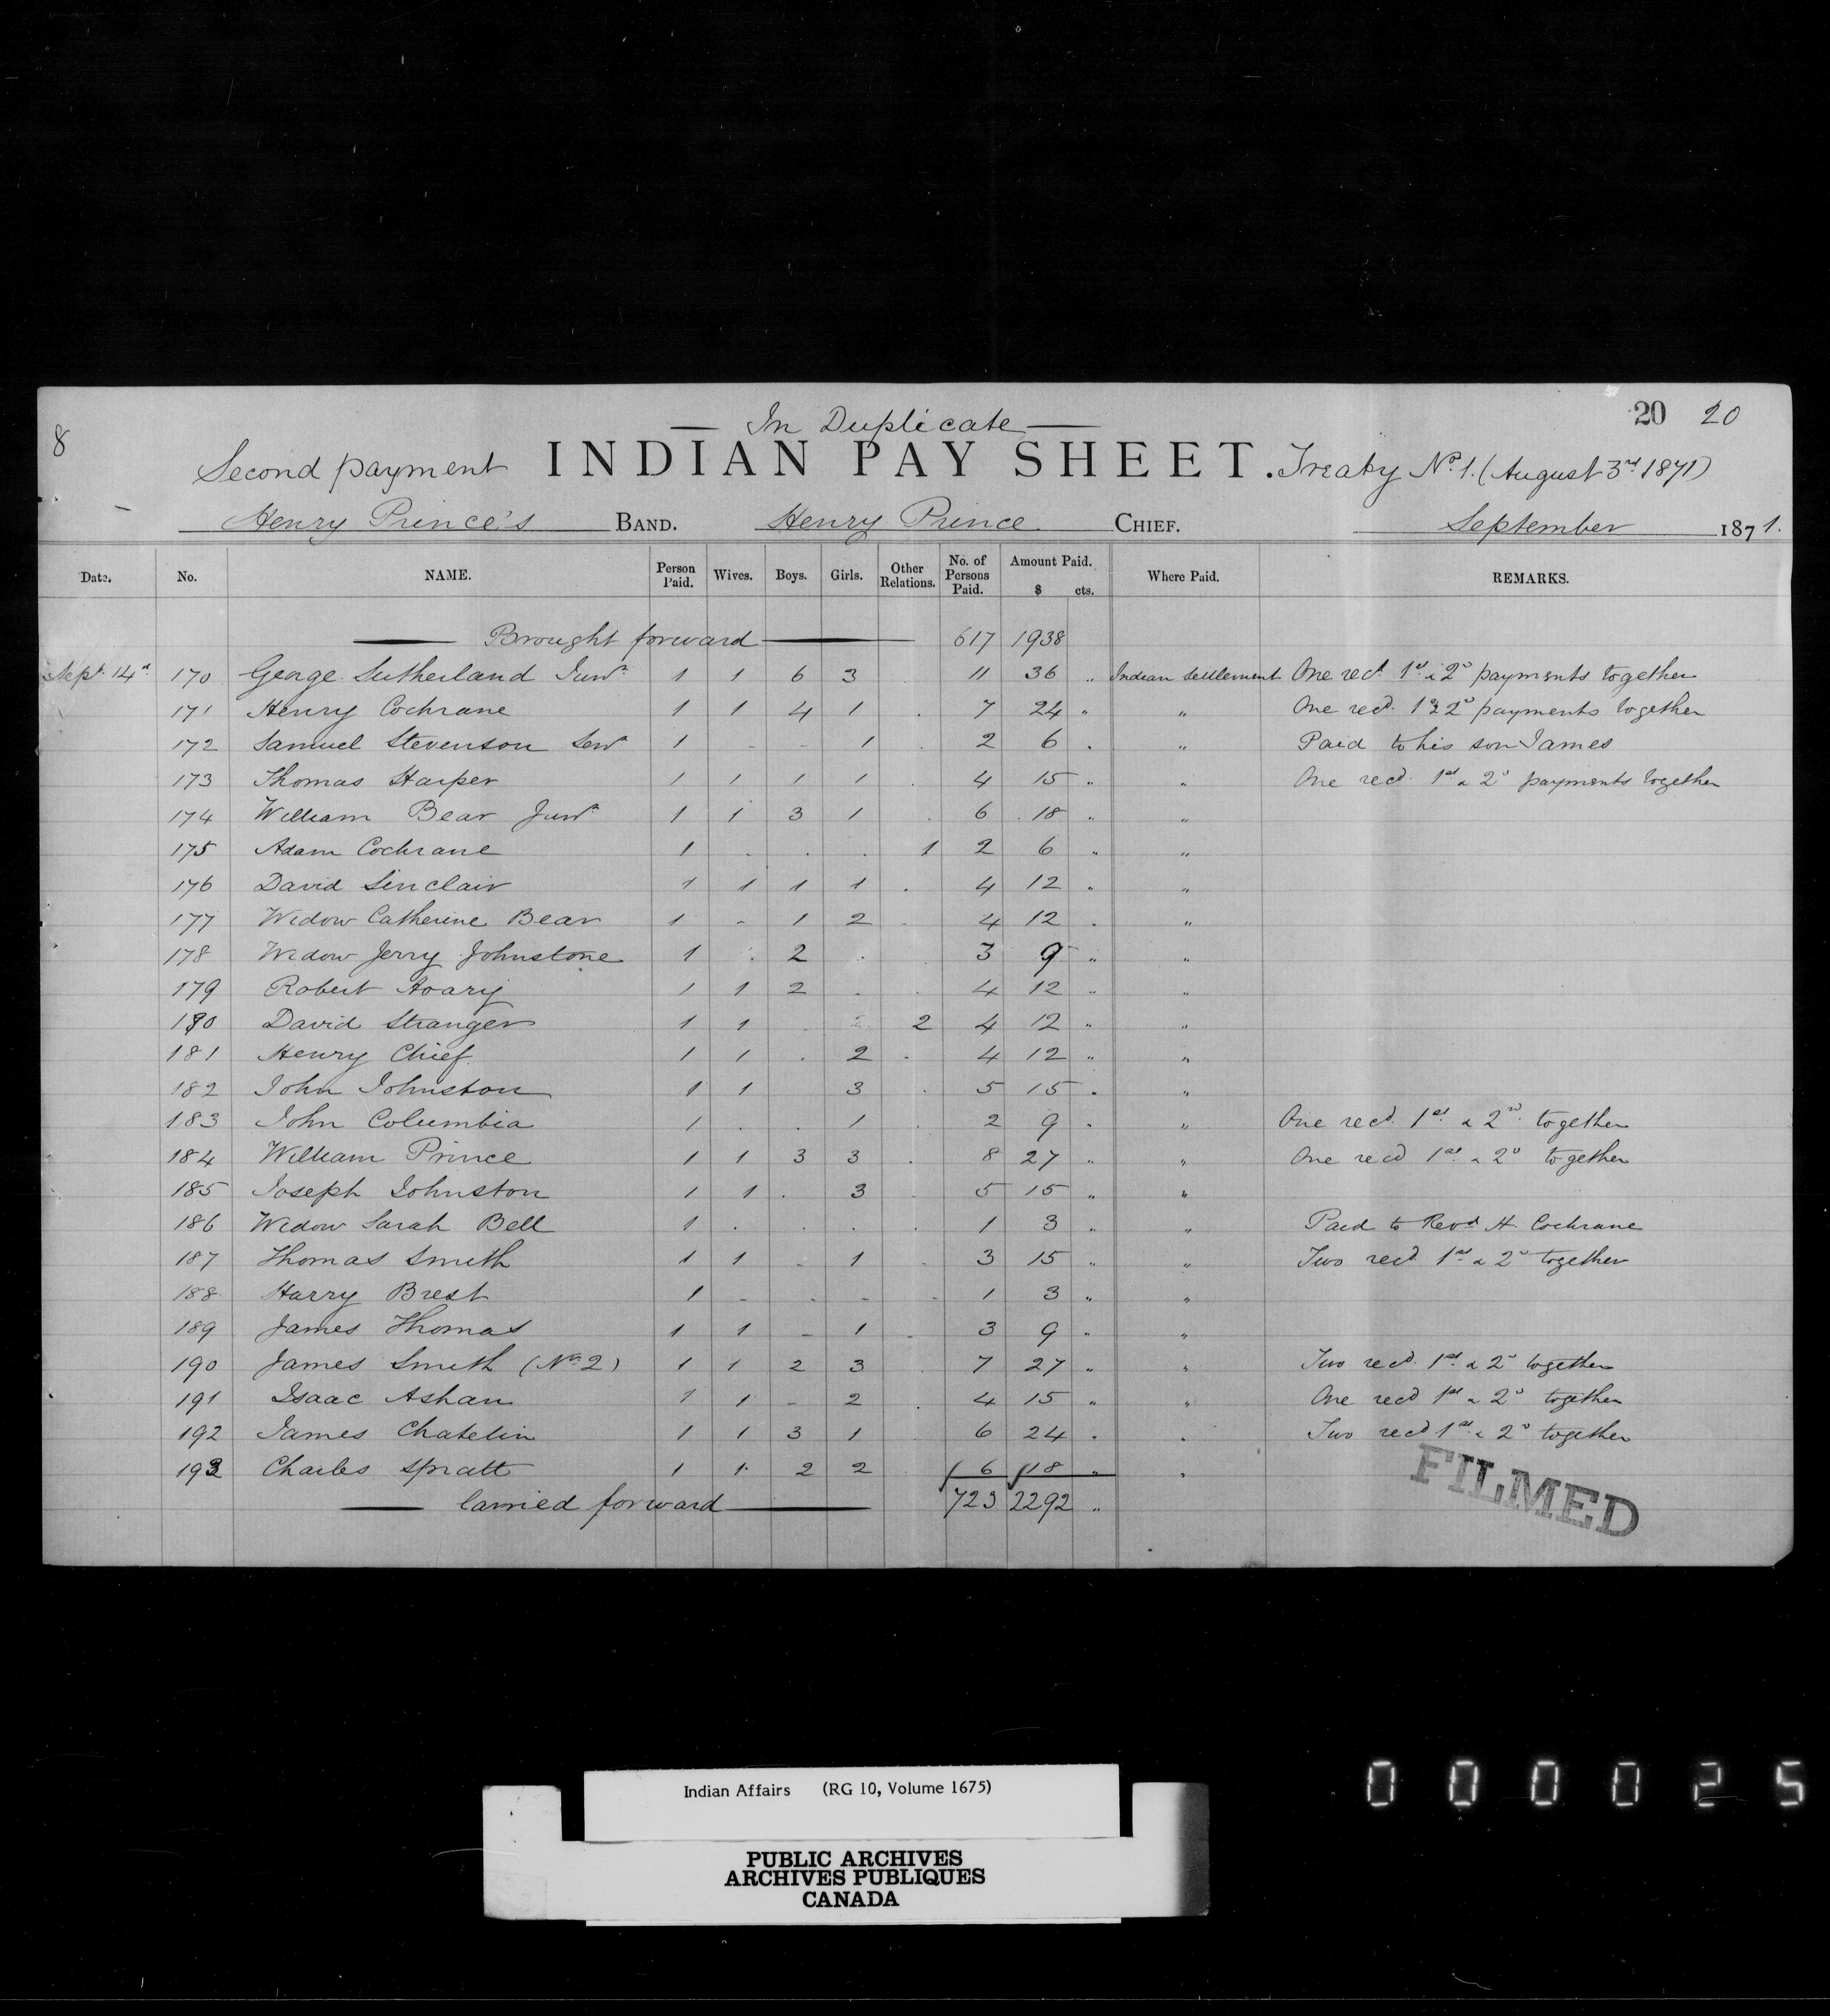 8
— In Duplicate —
20 20
Second payment INDIAN PAY SHEET. Treaty No. 1. (August 3rd 1871)
Henry Prince's BAND. Henry Prince CHIEF. September 1871.
Date. No. NAME. Person Paid. Wives. Boys. Girls. Other Relations. No. of Persons Paid. Amount Paid. $ cts. Where Paid. REMARKS.
— Brought forward — 617 1938
Sept. 14th 170 George Sutherland Junr. 1 1 6 3 11 36 " Indian Settlement One recd. 1st & 2d payments together
171 Henry Cochrane 1 1 4 1 . 7 24 " " One recd. 1 & 2d payments together
172 Samuel Stevenson Senr. 1 - - 1 . 2 6 . " Paid to his son James
173 Thomas Harper 1 1 1 1 . 4 15 " " One recd. 1st & 2d payments together
174 William Bear Junr. 1 1 3 1 . 6 18 " "
175 Adam Cochrane 1 . . . 1 2 6 " "
176 David Sinclair 1 1 1 1 . 4 12 " "
177 Widow Catherine Bear 1 - 1 2 4 12 . "
178 Widow Jerry Johnstone 1 . 2 . . 3 9 " "
179 Robert Hoary 1 1 2 . . 4 12 " "
180 David Stranger 1 1 2 4 12 " "
181 Henry Chief 1 1 . 2 . 4 12 " "
182 John Johnston 1 1 3 . 5 15 " "
183 John Columbia 1 . . 1 . 2 9 " " One recd. 1st & 2nd. together
184 William Prince 1 1 3 3 . 8 27 " " One recd 1st & 2d together
185 Joseph Johnston 1 1 . 3 5 15 " "
186 Widow Sarah Bell 1 . . . . 1 3 " " Paid to Revd H. Cochrane
187 Thomas Smith 1 1 - 1 - 3 15 " " Two recd. 1st & 2d together
188 Harry Brest 1 - - - - 1 3 " "
189 James Thomas 1 1 - 1 - 3 9 " "
190 James Smith (No. 2) 1 1 2 3 7 27 " " Two recd. 1st & 2d together
191 Isaac Asham 1 1 - 2 . 4 15 " " One recd 1st & 2d together
192 James Chatelin 1 1 3 1 6 24 " " Two recd 1st & 2d together
193 Charles Spratt 1 1 2 2 6 18 " "
— Carried forward — 723 2292 "
FILMED
Indian Affairs (RG 10, Volume 1675)
PUBLIC ARCHIVES
ARCHIVES PUBLIQUES
CANADA
000025